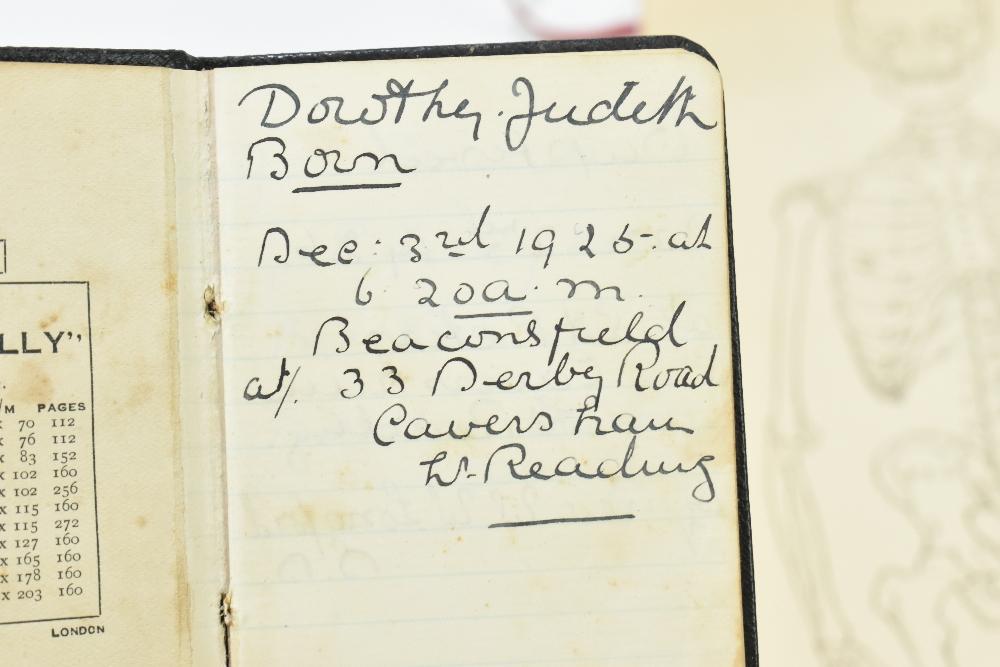 Dorothy. Judith
Born
Dec: 3rd 1925 at
6 20 a. m.
Beaconsfield
at/. 33 Derby Road
Caversham
Reading
LLY"
/M PAGES
x 70 112
x 76 112
x 83 152
x 102 160
x 102 256
x 115 160
x 115 272
x 127 160
x 165 160
x 178 160
x 203 160
LONDON